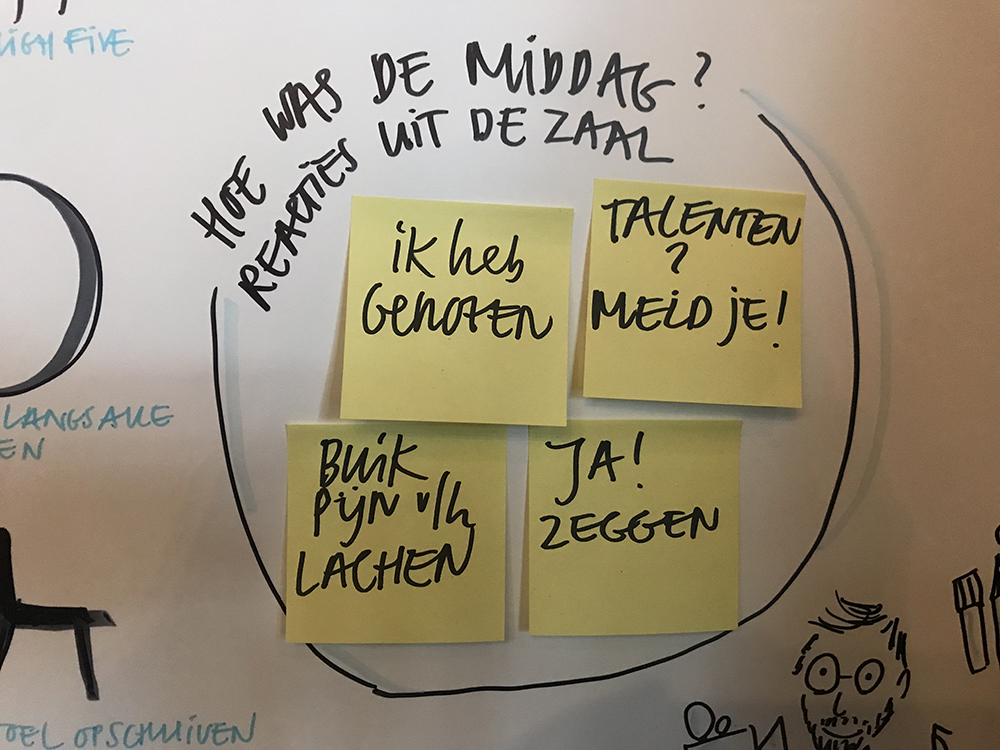 HIGH FIVE
HOE WAS DE MIDDAG?
REACTIES UIT DE ZAAL
ik heb
GENOTEN
TALENTEN
?
MELD JE!
BUIK
PIJN v/h
LACHEN
JA!
ZEGGEN
LANGS ALLE
EN
OEL OPSCHUIVEN